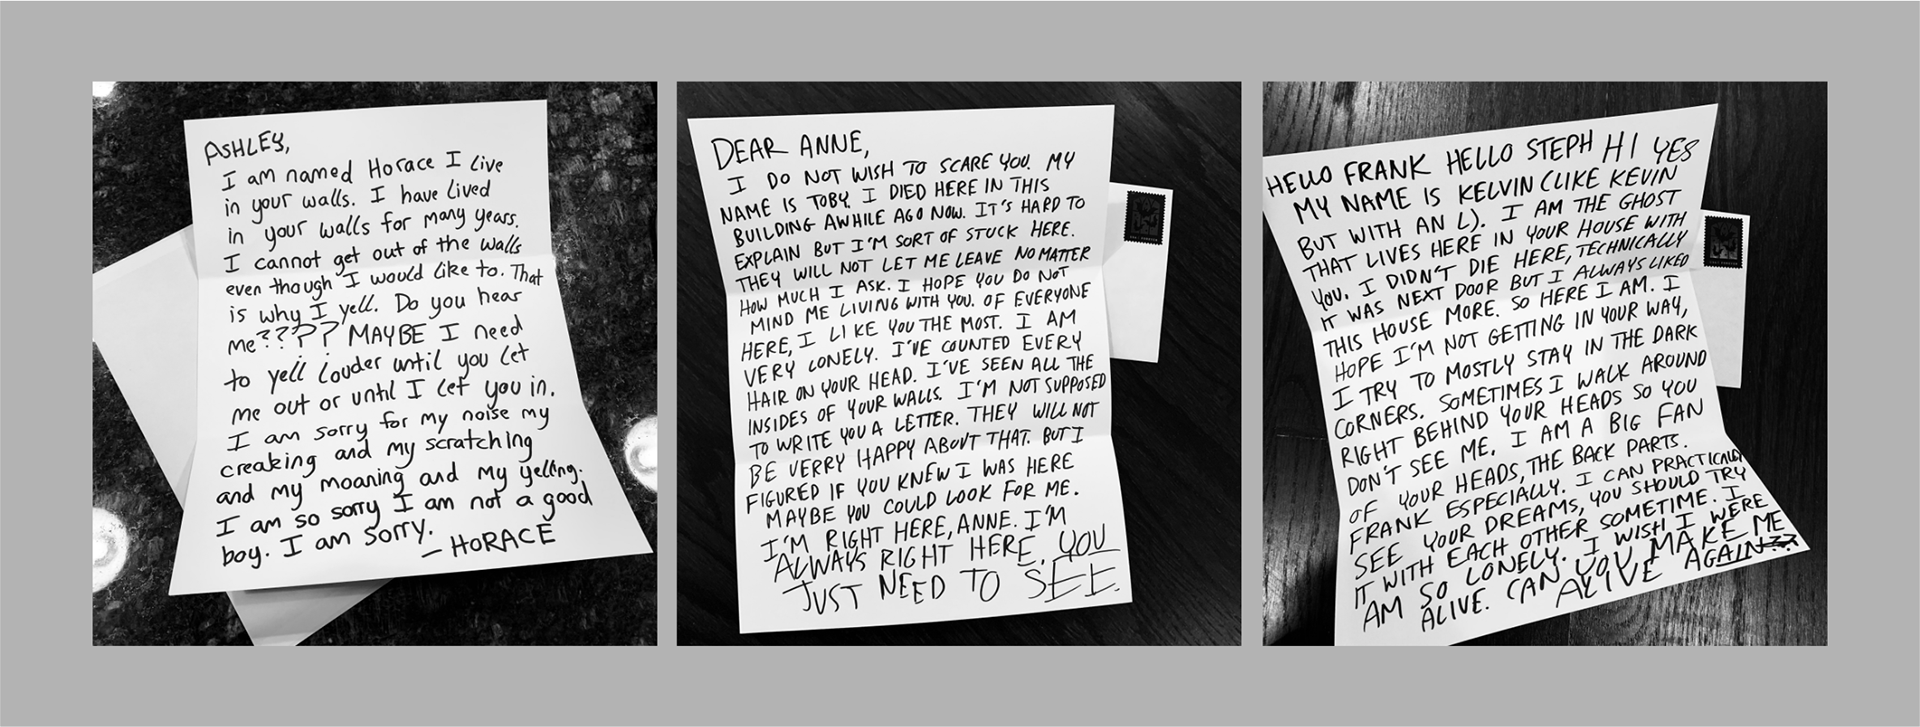 ASHLEY,
I am named Horace I live
in your walls. I have lived
in your walls for many years.
I cannot get out of the walls
even though I would like to. That
is why I yell. Do you hear
me????? MAYBE I need
to yell louder until you let
me out or until I let you in.
I am sorry for my noise my
creaking and my scratching
and my moaning and my yelling.
I am so sorry I am not a good
boy. I am sorry.
— HORACE
DEAR ANNE,
I DO NOT WISH TO SCARE YOU. MY
NAME IS TOBY. I DIED HERE IN THIS
BUILDING AWHILE AGO NOW. IT'S HARD TO
EXPLAIN BUT I'M SORT OF STUCK HERE.
THEY WILL NOT LET ME LEAVE NO MATTER
HOW MUCH I ASK. I HOPE YOU DO NOT
MIND ME LIVING WITH YOU. OF EVERYONE
HERE, I LIKE YOU THE MOST. I AM
VERY LONELY. I'VE COUNTED EVERY
HAIR ON YOUR HEAD. I'VE SEEN ALL THE
INSIDES OF YOUR WALLS. I'M NOT SUPPOSED
TO WRITE YOU A LETTER. THEY WILL NOT
BE VERRY HAPPY ABOUT THAT. BUT I
FIGURED IF YOU KNEW I WAS HERE
MAYBE YOU COULD LOOK FOR ME.
I'M RIGHT HERE, ANNE. I'M
ALWAYS RIGHT HERE. YOU
JUST NEED TO SEE.
HELLO FRANK HELLO STEPH HI YES
MY NAME IS KELVIN (LIKE KEVIN
BUT WITH AN L). I AM THE GHOST
THAT LIVES HERE IN YOUR HOUSE WITH
YOU. I DIDN'T DIE HERE, TECHNICALLY
IT WAS NEXT DOOR BUT I ALWAYS LIKED
THIS HOUSE MORE. SO HERE I AM. I
HOPE I'M NOT GETTING IN YOUR WAY,
I TRY TO MOSTLY STAY IN THE DARK
CORNERS. SOMETIMES I WALK AROUND
RIGHT BEHIND YOUR HEADS SO YOU
DON'T SEE ME. I AM A BIG FAN
OF YOUR HEADS, THE BACK PARTS.
FRANK ESPECIALLY. I CAN PRACTICALLY
SEE YOUR DREAMS, YOU SHOULD TRY
IT WITH EACH OTHER SOMETIME. I
AM SO LONELY. I WISH I WERE
ALIVE. CAN YOU MAKE ME
ALIVE AGAIN??